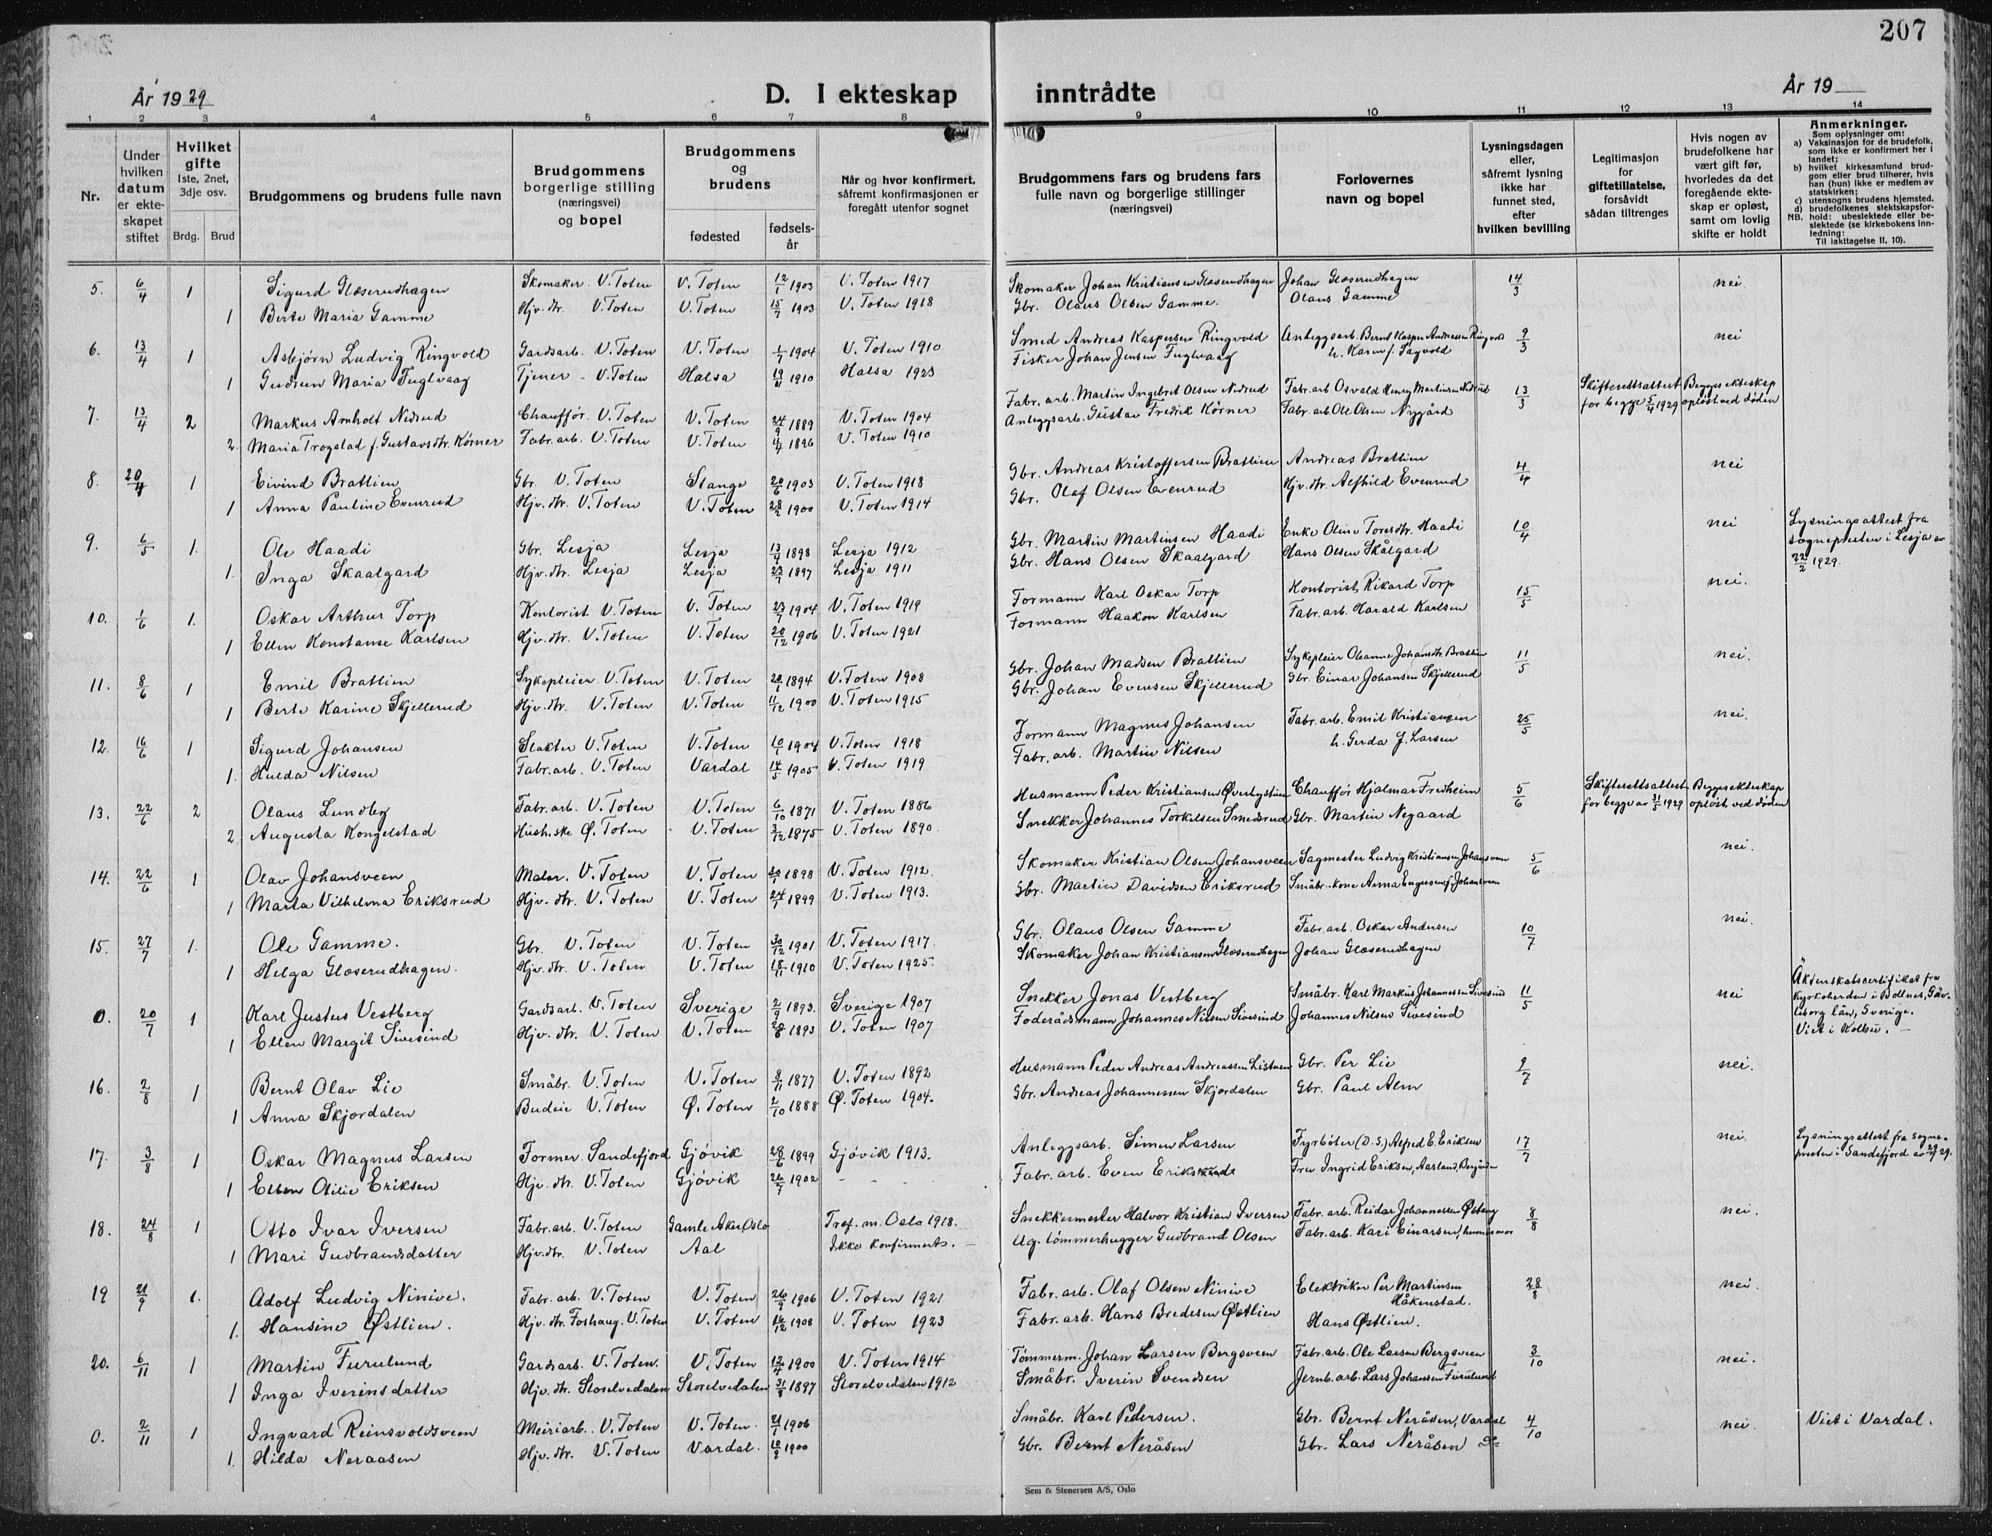 207
År 1929
D. I ekteskap inntrådte
År 19
1 2 3 4 5 6 7 8 9 10 11 12 13 14
Nr.
Under hvilken datum er ekteskapet stiftet
Hvilket gifte 1ste, 2net, 3dje osv.
Brdg. Brud
Brudgommens og brudens fulle navn
Brudgommens borgerlige stilling (næringsvei) og bopel
Brudgommens og brudens
fødested
fødselsår
Når og hvor konfirmert, såfremt konfirmasjonen er foregått utenfor sognet
Brudgommens fars og brudens fars fulle navn og borgerlige stillinger (næringsvei)
Forlovernes navn og bopel
Lysningsdagen eller, såfremt lysning ikke har funnet sted, efter hvilken bevilling
Legitimasjon for giftetillatelse, forsåvidt sådan tiltrenges
Hvis nogen av brudefolkene har vært gift før, hvorledes da det foregående ekteskap er opløst, samt om lovlig skifte er holdt
Anmerkninger.
Som oplysninger om:
a) Vaksinasjon for de brudefolk, som ikke er konfirmert her i landet;
b) hvilket kirkesamfund brudgom eller brud tilhører, hvis han (hun) ikke er medlem av statskirken;
c) utensogns brudens hjemsted.
d) brudefolkenes slektskapsforhold: ubeslektede eller beslektede (se kirkebokens innledning:
NB. Til iakttagelse II. 10).
5. 6/4 1 Sigurd Glæserudhagen Skomaker V. Toten V. Toten 12/1 1903 V. Toten 1917 Skomaker Johan Kristiansen Glæserudhagen Johan Glæserudhagen 14/3 nei
1 Berte Maria Gamme Hjv. dtr. V. Toten V. Toten 15/7 1903 V. Toten 1918 Gbr. Olaus Olsen Gamme. Olaus Gamme
6. 13/4 1 Asbjørn Ludvig Ringvold Gardsarb. V. Toten V. Toten 1/7 1904 V. Toten 1910 Smed Andreas Kaspersen Ringvold Anleggsarb. Bernt Kasper Andreassen Ringvold 9/3 nei
1 Gudrun Maria Fuglvaag Tjener - V. Toten Halsa 19/11 1910 Halsa 1923 Fisker Johan Jensen Fuglvaag h. Karen f. Sagvold
7. 13/4 2 Markus Arnholt Nidrud Chauffør V. Toten V. Toten 24/9 1889 V. Toten 1904 Fabr. arb. Martin Ingebret Olsen Nidrud Fabr. arb Osvald Henry Martinsen Nidrud 13/3 Skifterettsattest for begge 5/4 1929 Begges ekteskap opløst ved døden
2. Maria Trogstad f. Gustavsdtr. Körner Fabr. arb. V. Toten V. Toten 4/4 1896 V. Toten 1910 Anleggsarb. Gustav Fredrik Körner Fabr. arb Ole Olsen Nygård
8. 20/4 1 Eivind Brattlien Gbr. V. Toten Stange 20/6 1903 V. Toten 1918 Gbr. Andreas Kristoffersen Brattlien Andreas Brattlien 4/4 nei
1 Anna Pauline Evenrud Hjv. dtr. V. Toten V. Toten 28/2 1900 V. Toten 1914 Gbr. Olaf Olsen Evenrud Hjv. dtr. Alfhild Evenrud
9. 6/5 1. Ole Haadi Gbr. Lesja Lesja 13/4 1898 Lesja 1912 Gbr. Martin Martinsen Haadi Enke Oline Toresdtr. Haadi 10/4 nei Lysningsattest fra sognepresten i Lesja av 22/2 1929.
1. Inga Skaalgard Hjv. dtr. Lesja Lesja 23/7 1897 Lesja 1911 Gbr. Hans Olsen Skaalgard Hans Olsen Skålgard
10. 1/6 1. Oskar Arthur Torp Kontorist V. Toten V. Toten 23/7 1904 V. Toten 1919 Formann Karl Oskar Torp Kontorist Rikard Torp 15/5 nei.
1 Ellen Konstanse Karlsen Hjv. dtr. V. Toten V. Toten 20/12 1906 V. Toten 1921 Formann Haakon Karlsen Fabr. arb. Harald Karlsen
11. 8/6 1 Emil Brattlien Sykepleier V. Toten V. Toten 20/1 1894 V. Toten 1908 Gbr. Johan Madsen Brattlien Sykepleier Oleanna Johansdtr. Brattlien 11/5 nei.
1 Berte Karine Skjellerud Hjv. dtr. V. Toten V. Toten 11/12 1900 V. Toten 1915 Gbr. Johan Evensen Skjellerud Gbr. Einar Johansen Skjellerud
12. 16/6 1 Sigurd Johansen Slakter V. Toten V. Toten 10/1 1904 V. Toten 1918 Formann Magnus Johansen Fabr. arb. Emil Kristiansen 25/5 nei.
1. Hulda Nilsen Fabr. arb. V. Toten Vardal 14/5 1905 V. Toten 1919 Fabr. arb. Martin Nilsen h. Gerda J. Larsen
13. 22/6 2 Olaus Lundby Fabr. arb. V. Toten V. Toten 6/10 1871 V. Toten 1886 Husmann Peder Kristiansen Øverbystuen Chauffør Hjalmar Fredheim 5/6 Skifterettsattest for begge av 31/5 1929 Begges ekteskap opløst ved døden
2. Augusta Kongelstad Hush. ske Ø. Toten V. Toten 3/12 1875 V. Toten 1890. Snekker Johannes Torkilsen Smedsrud Gbr. Martin Negaard
14. 22/6 1 Olav Johansveen Maler. V. Toten V. Toten 20/1 1898 V. Toten 1912. Skomaker Kristian Olsen Johansveen Sagmester Ludvig Kristiansen Johansveen 5/6 nei.
1 Marta Vilhelma Eriksrud Hjv. dtr. V. Toten V. Toten 24/1 1899 V. Toten 1913. Gbr. Martin Davidsen Eriksrud Småbr. kone Anna Engesen f. Johansveen
15. 27/7 1. Ole Gamme. Gbr. V. Toten V. Toten 30/12 1901 V. Toten 1917. Gbr. Olaus Olsen Gamme Fabr. arb. Oskar Andersen 10/7 nei.
1 Helga Glæserudhagen. Hjv. dtr. V. Toten V. Toten 18/11 1910 V. Toten 1925. Skomaker Johan Kristiansen Glæserudhagen Johan Glæserudhagen
0. 20/7 1 Karl Justus Vestberg Gardsarb. V. Toten Sverige 2/9 1893. Sverige 1907 Snekker Jonas Vestberg Småbr. Karl Markus Johannessen Sivesind 11/5 nei Äktenskapscertifikat fra kyrkoherden i Bollnes, Gävleborg län, Sverige. Viet i Kolbu. -
1 Ellen Margit Sivesind Hjv. dtr. V. Toten V. Toten 20/8 1893 V. Toten 1907 Føderådsmann Johannes Nilsen Sivesind Johannes Nilsen Sivesind
16. 2/8 1 Bernt Olav Lie Småbr. V. Toten V. Toten 8/11 1877 V. Toten 1892 Husmann Peder Andreas Andreassen Listuen Gbr. Per Lie 9/7 nei.
1 Anna Skjordalen Budeie V. Toten Ø. Toten 2/10 1888 Ø. Toten 1904. Gbr. Andreas Johannessen Skjordalen Gbr. Paul Alm
17. 3/8 1 Oskar Magnus Larsen Former. Sandefjord Gjøvik 28/6 1899 Gjøvik 1913. Anleggsarb. Simen Larsen Fyrbøter (D.S.) Alfred E. Eriksen 17/7 nei. Lysningsattest fra sognepresten i Sandefjord av 29/7 29.
1 Ellen Otilie Eriksen Hjv. dtr. V. Toten Gjøvik 26/7 1902 - - Fabr. arb. Even Eriksen Fru Ingrid Eriksen, Aasland,
18. 24/8 1 Otto Ivar Iversen Fabr. arb. V. Toten Gamle Aker Oslo Tref. m. Oslo 1918. Snekkermester Halvor Kristian Iversen Fabr. arb. Reidar Johannessen Østeng 8/8 nei.
1 Mari Gudbrandsdatter Hjv. dtr. V. Toten Aal Ikke konfirmert. Ug. tømmerhugger Gudbrand Olsen Fabr. arb. Kari Einarsen,
19 21/9 1. Adolf Ludvig Ninive. Fabr. arb. V. Toten V. Toten 26/9 1906 V. Toten 1921 Fabr. arb. Olaf Olsen Ninive Elektriker Per Martinsen Håkenstad. 28/8 nei.
1. Hansine Østlien. Hjv. dtr. Foshaug. V. Toten V. Toten 16/12 1908 V. Toten 1923 Fabr. arb. Hans Bredesen Østlien Hans Østlien.
20. 6/11 1 Martin Furulund Gardsarb. V. Toten. V. Toten 12/4 1900 V. Toten 1914 Tømmerm. Johan Larsen Bergsveen Fabr. arb. Ole Larsen Bergsveen 3/10 nei.
1 Inga Iverinsdatter Hjv. dtr. Storelvedalen Storelvedalen 31/8 1897 Storelvedalen 1912 Småbr. Iverin Svendsen Jernb. arb. Lars Johansen Furulund
0. 2/11 1 Ingvard Reinsvoldsveen Meiriarb. V. Toten V. Toten. 21/1 1906 Småbr. Karl Pedersen. Gbr. Bernt Neråsen, Vardal 4/10 nei. Viet i Vardal.
1. Hilda Neraasen Hjv. dtr. V. Toten Vardal. 10/9 1900 Gbr. Bernt Neråsen Gbr. Lars Neråsen
Sem & Stenersen A/S, Oslo